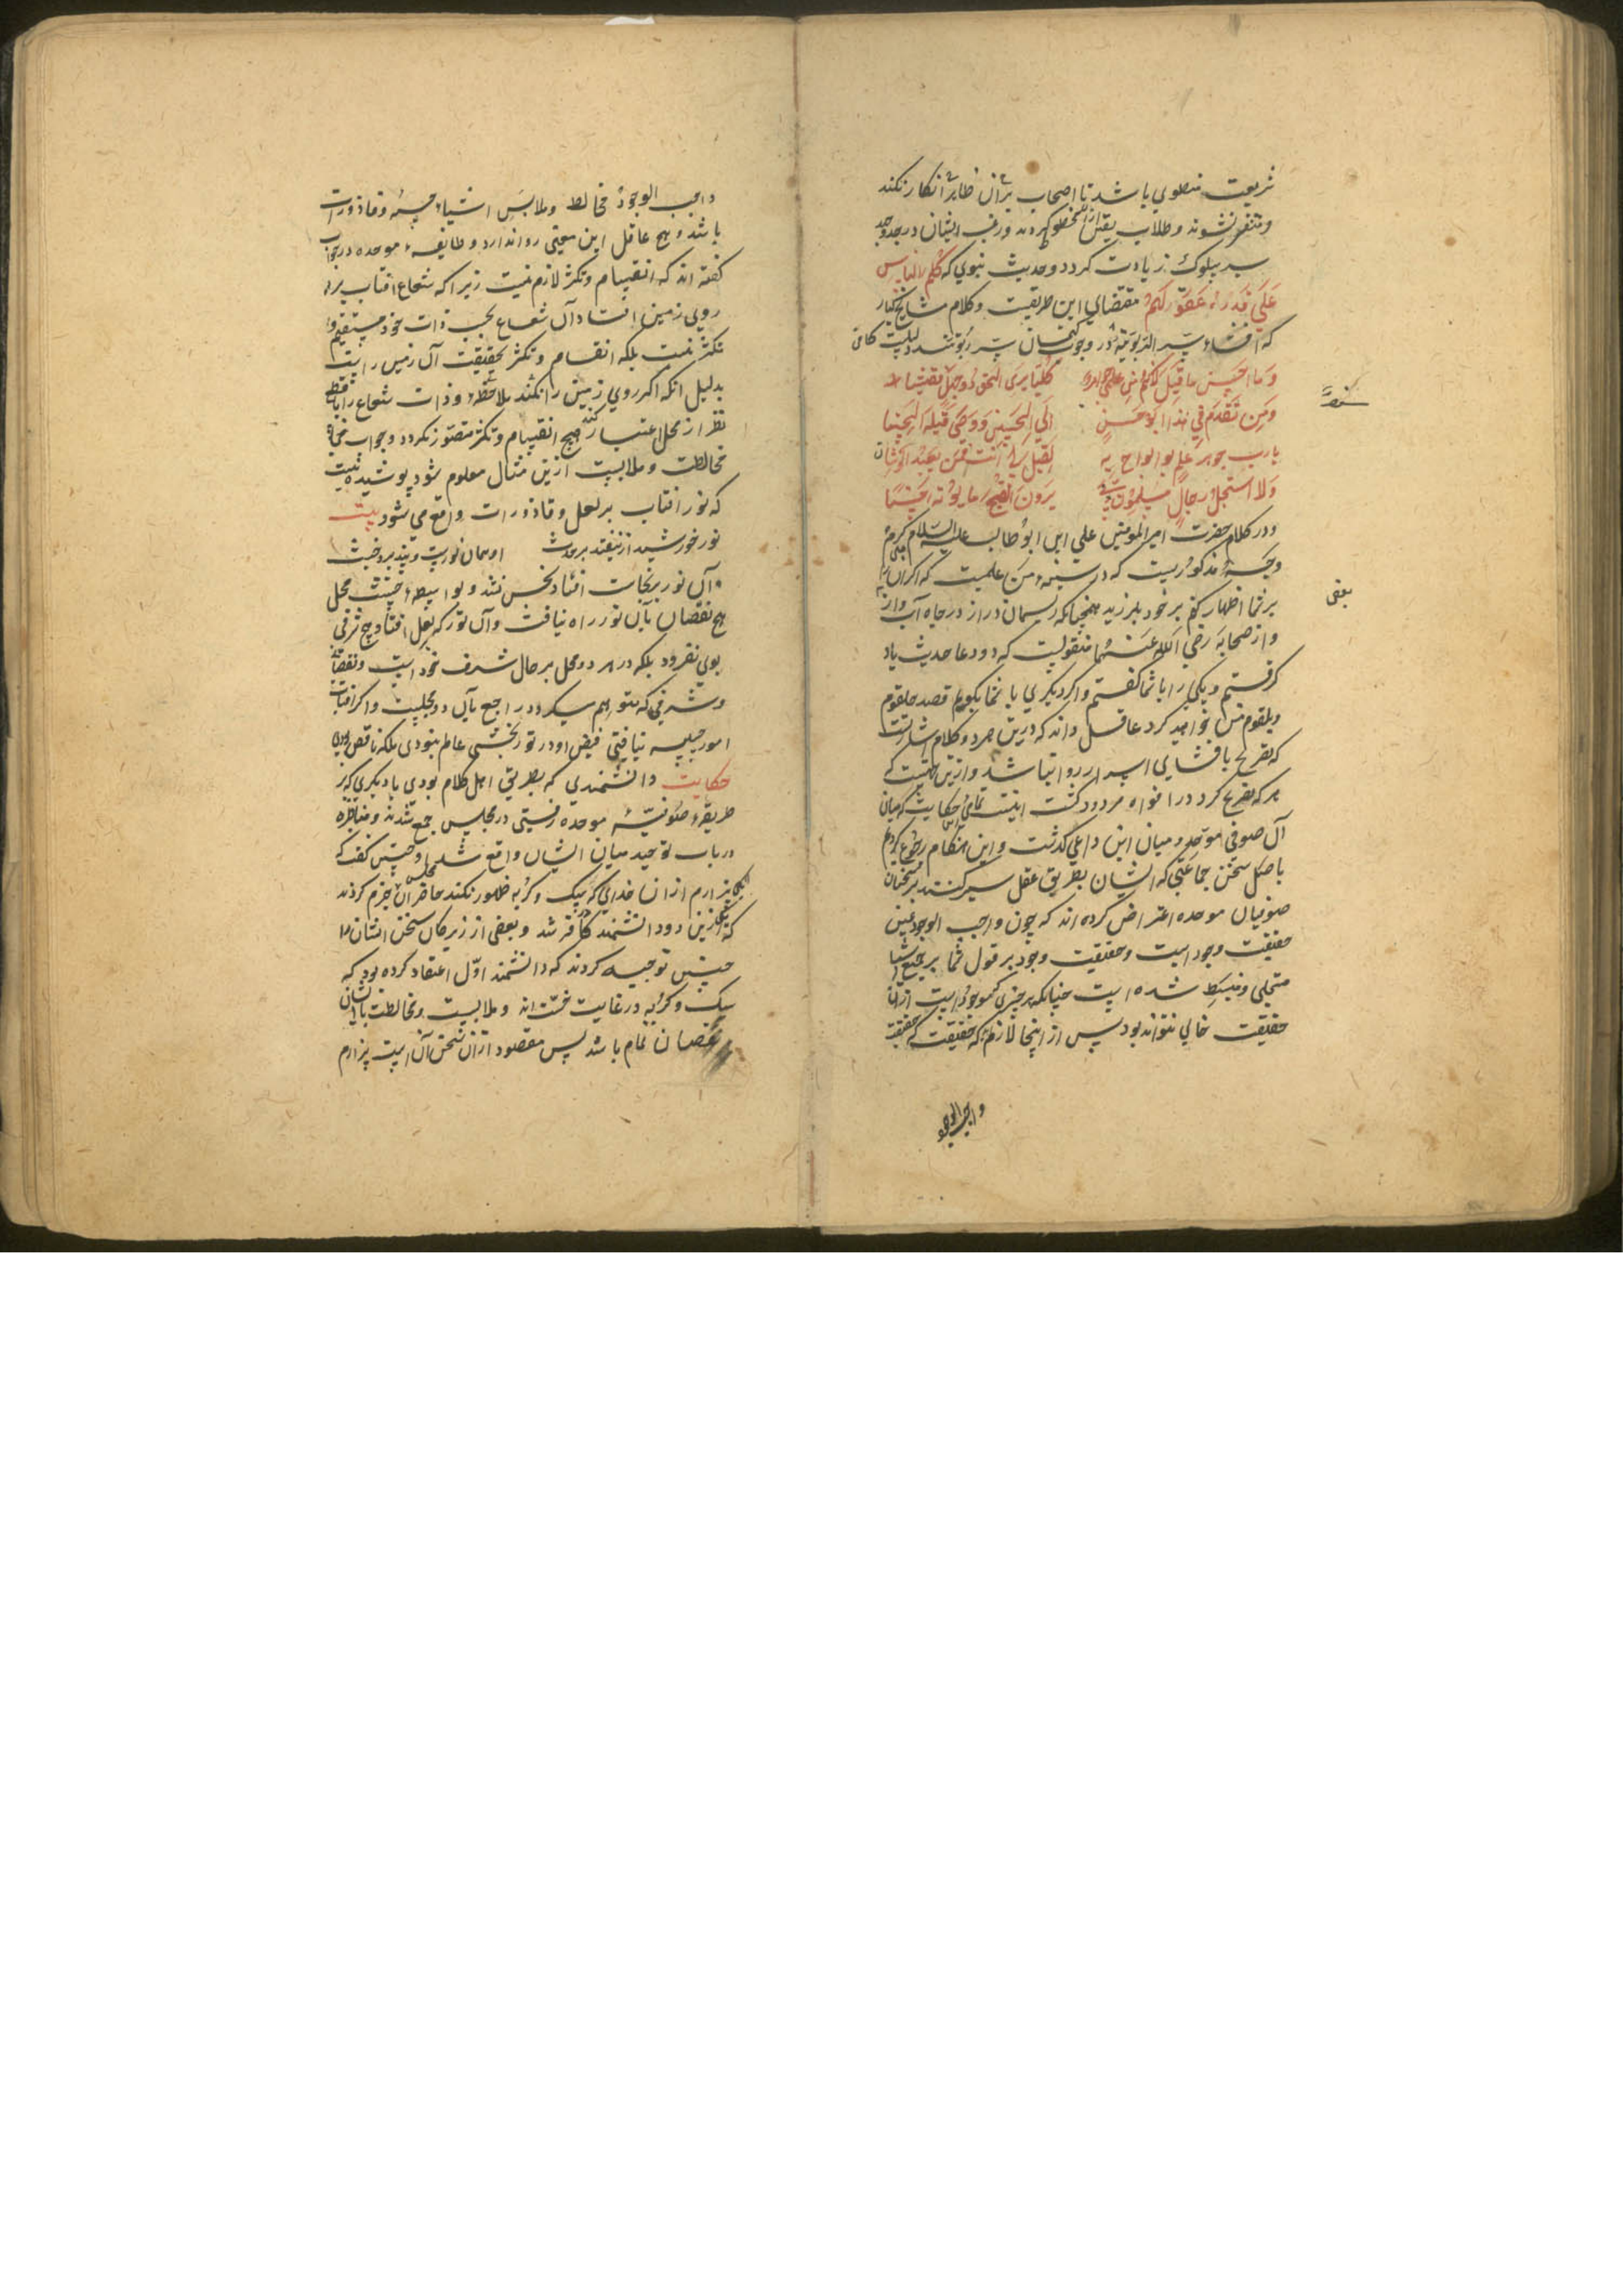 شریعت منطوی باشد تا اصحاب بر آن ظاهر انکار نکند
و متنفر نشوند و طلاب یقین از آن محظوظ کردند و رغبت ایشان در جد و جهد
سیر سلوک زیادت کردد و حدیث نبوی که کلم الناس
علی قدر عقولهم مقتضای این طریقت و کلام مشایخ کبار
که افشاء سر الربوبیة در وجوب کتمان سر ربوبیت دلیلیست کافی
انی لاکتم من علمی جواهره کیلا یری الحق ذو جهل
و من تقدم فی هذا ابو حسن الی الحسین و وصی قبله الحسنا
یارب جوهر علم لو ابوح به لقیل لی انت ممن یعبد الوثنا
ولا استحل رجال مسلمون دمی یرون اقبح ما یاتونه حسنا
و در کلام حضرت امیر المومنین علی ابن ابو طالب علیه السلام کرم
وجهه مذکوریست که در سینه من علمیست که اگر آن را
بر شما اظهار کنم بر خود بلرزید همچنانکه ریسمان دراز در چاه آب
و از صحابه رضی الله عنهما منقولیست که دو دعا حدیث یاد
کرفتم و یکی را با شما کفتم و اگر دیکری با شما بکویم قصد حلقوم
و بلعوم من خواهید کرد عاقل داند که درین هر دو کلام اشارتست
که تصریح بافشای اسرار روا نباشد و ازین جهتست که
هر که تصریح کرد در افواه مردود کشت اینست تمامی حکایت که میان
آن صوفی موحد و میان این داعی کذشت و این هنکام رجوع کردم
باصل سخن جماعتی که ایشان بطریق عقل سیر کنند بر سخنان
صوفیان موحده اعتراض کرده اند که چون واجب الوجود عین
حقیقت وجود است و حقیقت وجود بر قول شما بر جمیع اشیا
متجلی و منبسط شده است چنانکه هر چیزی که موجود است از آن
حقیقت خالی نتواند بود پس از اینجا لازم که حقیقت که حقیقت
واجب الوجود
بعضی
واجب الوجود مخالط و ملابس اشیاء خسیسه و قاذورات
باشد و هیچ عاقل این معنی روا ندارد و طایفه موحده در جواب
کفته اند که انقسام و تکثر لازم نیست زیرا که شعاع افتاب بر
روی زمین افتاد آن شعاع بحسب ذات خود منقسم و
تکثر نیست بلکه انقسام و تکثر بحقیقت آن زمین راست
بدلیل انکه اگر روی زمین را نکنند ملاحظه و ذات شعاع را با قطع
نظر از محل اعتبار کنند هیچ انقسام و تکثر متصور نکردد و جواب
مخالطت و ملابست ازین مثال معلوم شود پوشیده نیست
که نور افتاب بر لعل و قاذورات واقع می شود بیت
نور خورشید ار بیفتد بر حدث او همان نورست نپذیرد خبث
آن نور بر نجاست افتاد نجس نشد و بواسطه خبث محل
هیچ نقصان بآن نور راه نیافت و آن نور که بلعل افتاد هیچ شرفی
بوی نفزود بلکه در هر دو محل بر حال شرف خود است و نقصان
و شرفی که متوهم میکردد راجع بآن دو محلیست و اگر افتاب
امور خسیسه نیافتی فیض او در نور بخشی عام نبودی بلکه ناقص بودی
حکایت دانشمندی که بطریق اهل کلام بودی با دیکری که بر
طریقه صوفیه موحده رفتی در مجلسی جمع شدند و مناظره
در باب توحید میان ایشان واقع شد چنین کفت که
بیزارم از آن خدای که بسک و کربه ظهور نکند حاضران مجلس جزم کردند
که یکی ازین دو دانشمند کافر شد و بعضی از زیرکان سخن ایشان را
چنین توجیه کردند که دانشمند اول اعتقاد کرده بود که
سک و کربه در غایت خست اند و ملابست و مخالطت با ایشان
نقصان تمام باشد پس مقصود از آن سخن آن است بیزارم